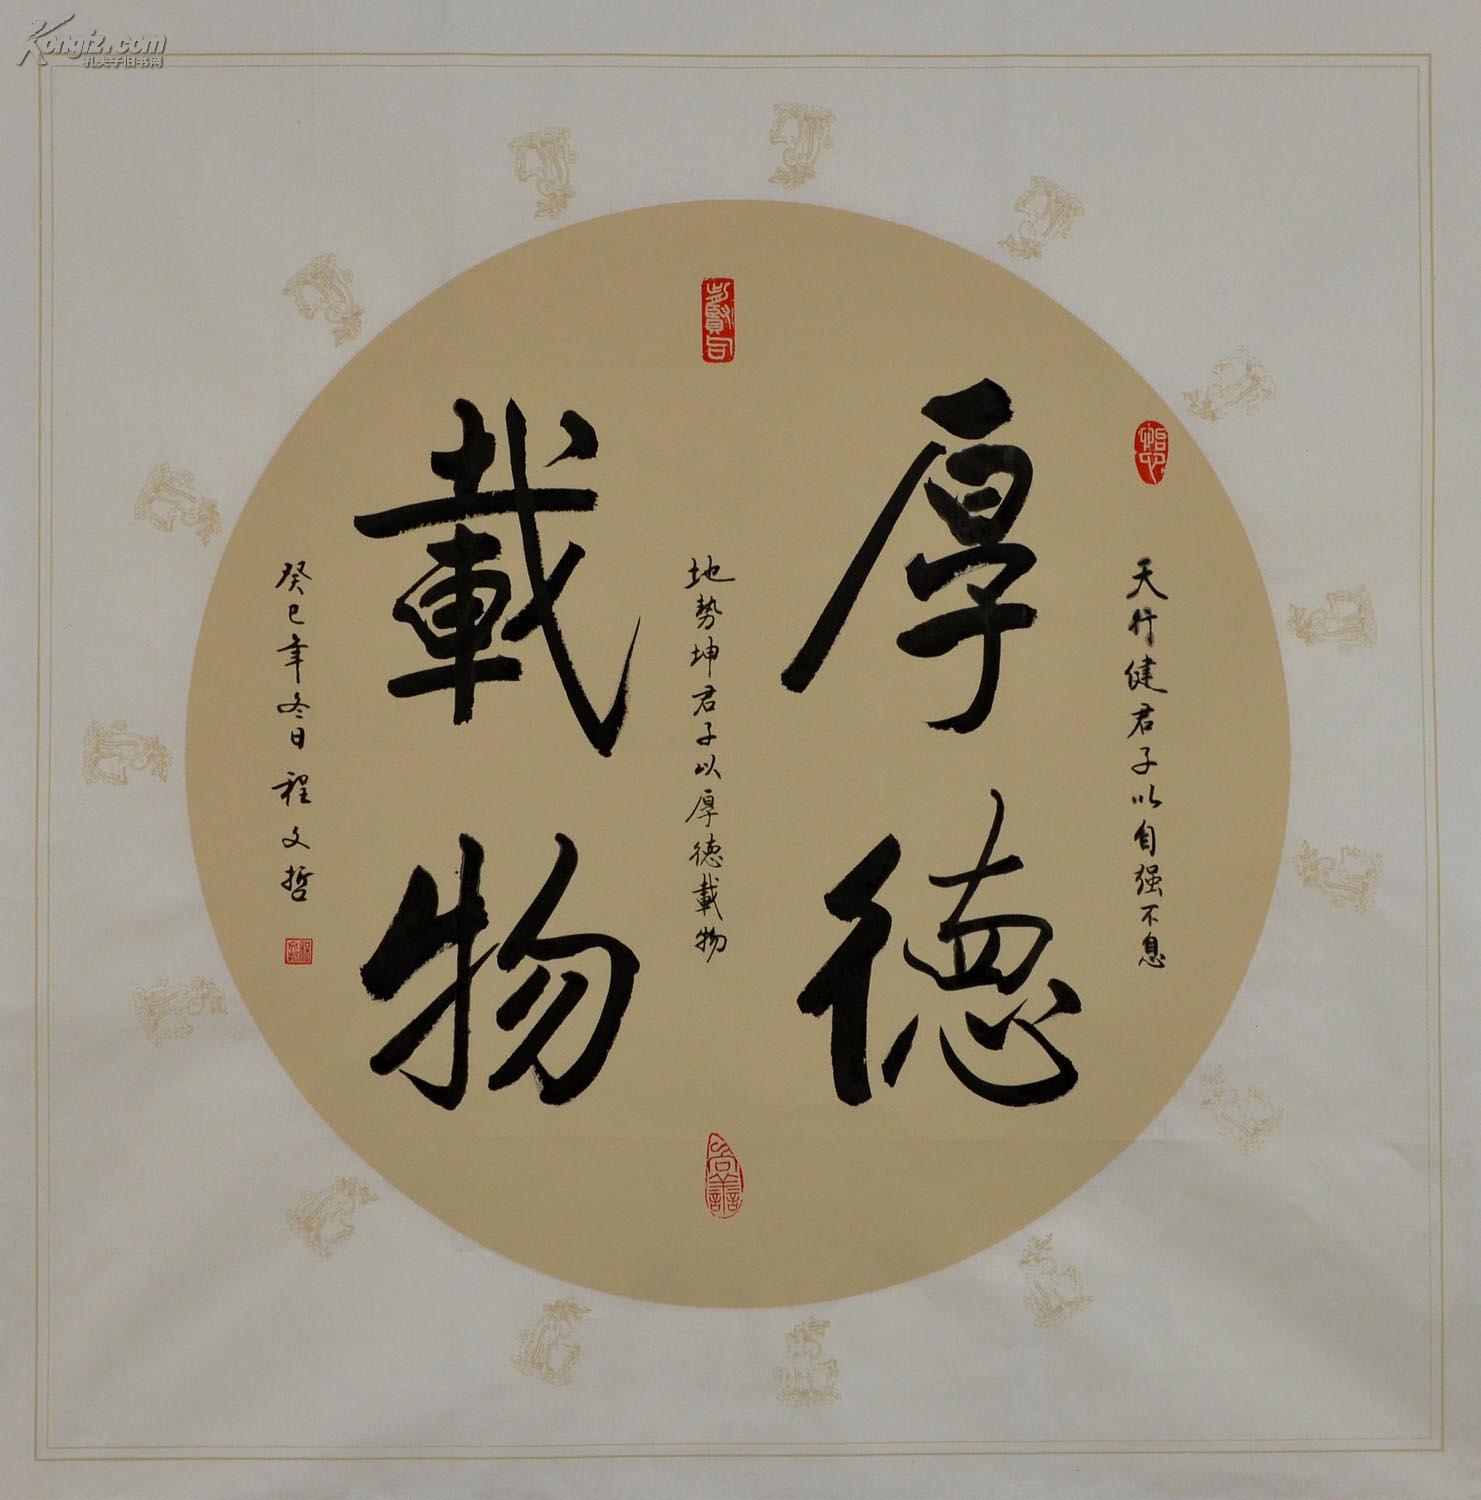 Kongfz.com
孔夫子旧书网
天行健君子以自强不息
厚德
地勢坤君子以厚德載物
載物
癸巳年冬日 程文哲